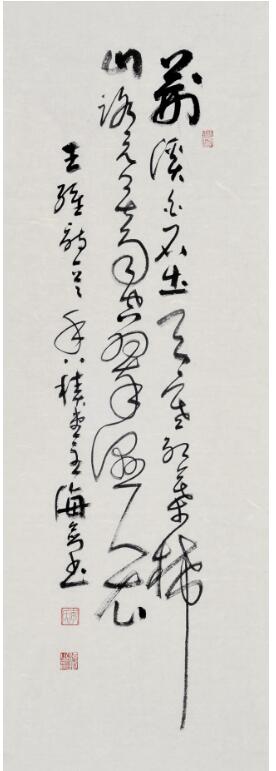 荆溪白石出天寒红葉稀
山路元无雨空翠湿人衣
王維詩 堂主海 书